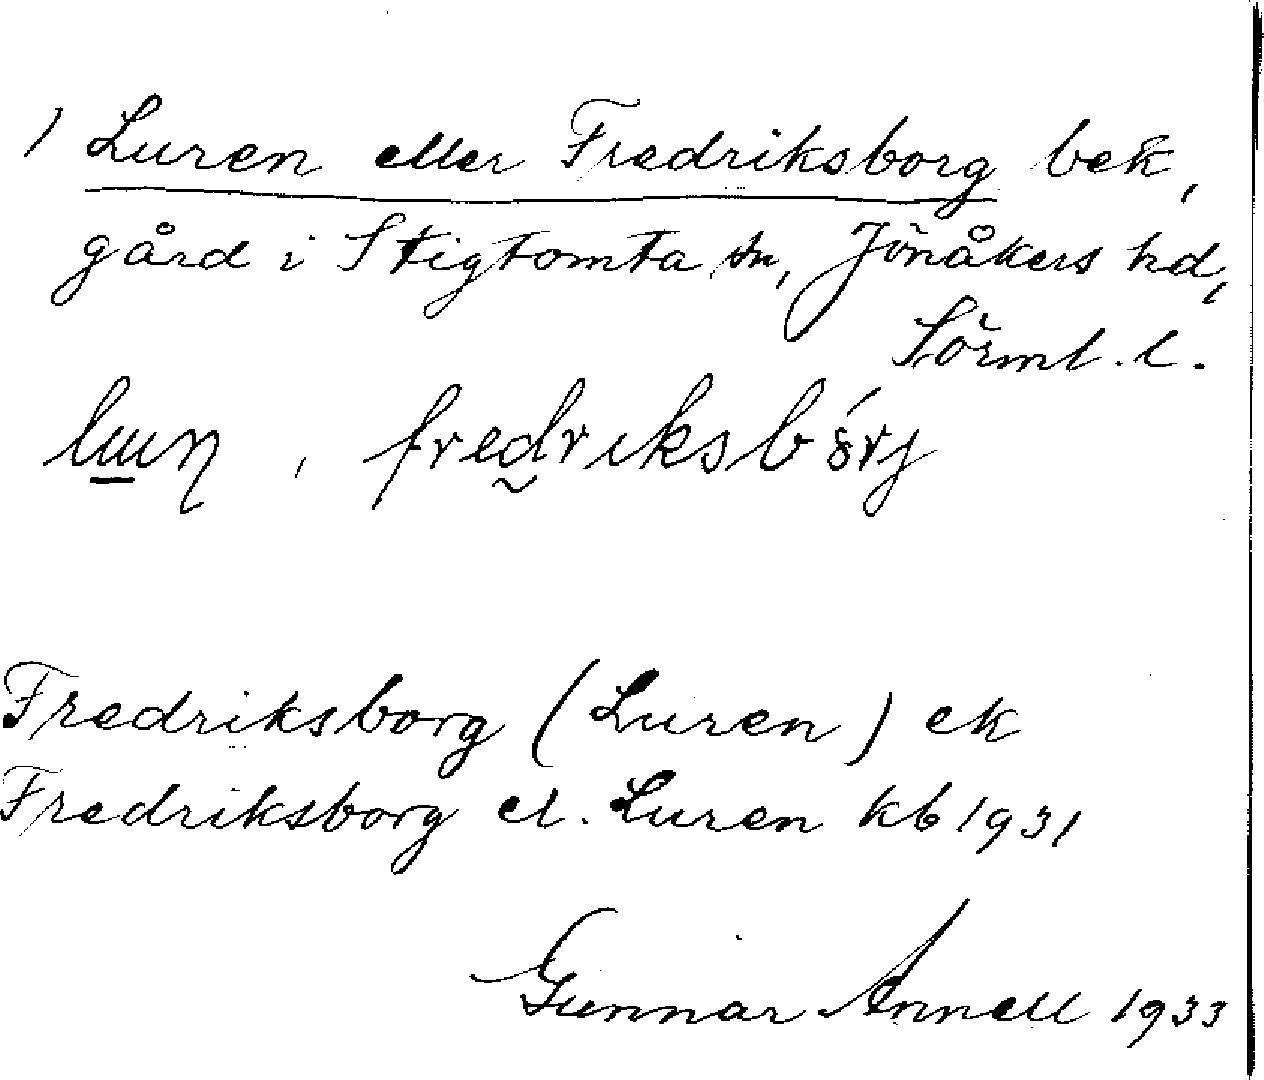 1 Luren eller Fredriksborg bek,
gård i Stigtomta sn, Jönåkers hd,
Sörml. l.
fredriksbórj
Fredriksborg (Luren) ek
Fredriksborg el. Luren kb 1931
Gunnar Annell 1933